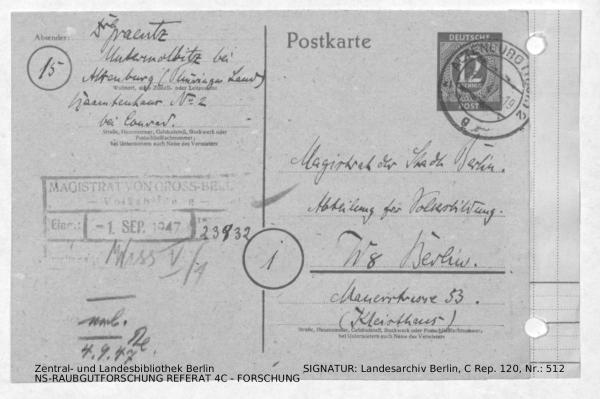 Absender:
Dr Graentz
Untermolbitz bei
Altenburg (Thüringer Land)
Wohnort, auch Zustell- oder Leitpostamt
Beamtenhaus No 2
bei Conrad.
Straße, Hausnummer, Gebäudeteil, Stockwerk oder
Postschließfachnummer;
bei Untermietern auch Name des Vermieters
15
Postkarte
DEUTSCHE
12
PFENNIG
POST
Magistrat der Stadt Berlin.
Abteilung für Volksbildung.
W8 Berlin.
1
Mauerstrasse 53.
(Kleisthaus)
Straße, Hausnummer, Gebäudeteil, Stockwerk oder Postschließfachnummer;
bei Untermietern auch Name des Vermieters
MAGISTRAT VON GROSS-BERLIN
Volksbildung
Eing.: -1. SEP. 1947
23832
V/1
4.9.47
Zentral- und Landesbibliothek Berlin
NS-RAUBGUTFORSCHUNG REFERAT 4C - FORSCHUNG
SIGNATUR: Landesarchiv Berlin, C Rep. 120, Nr.: 512